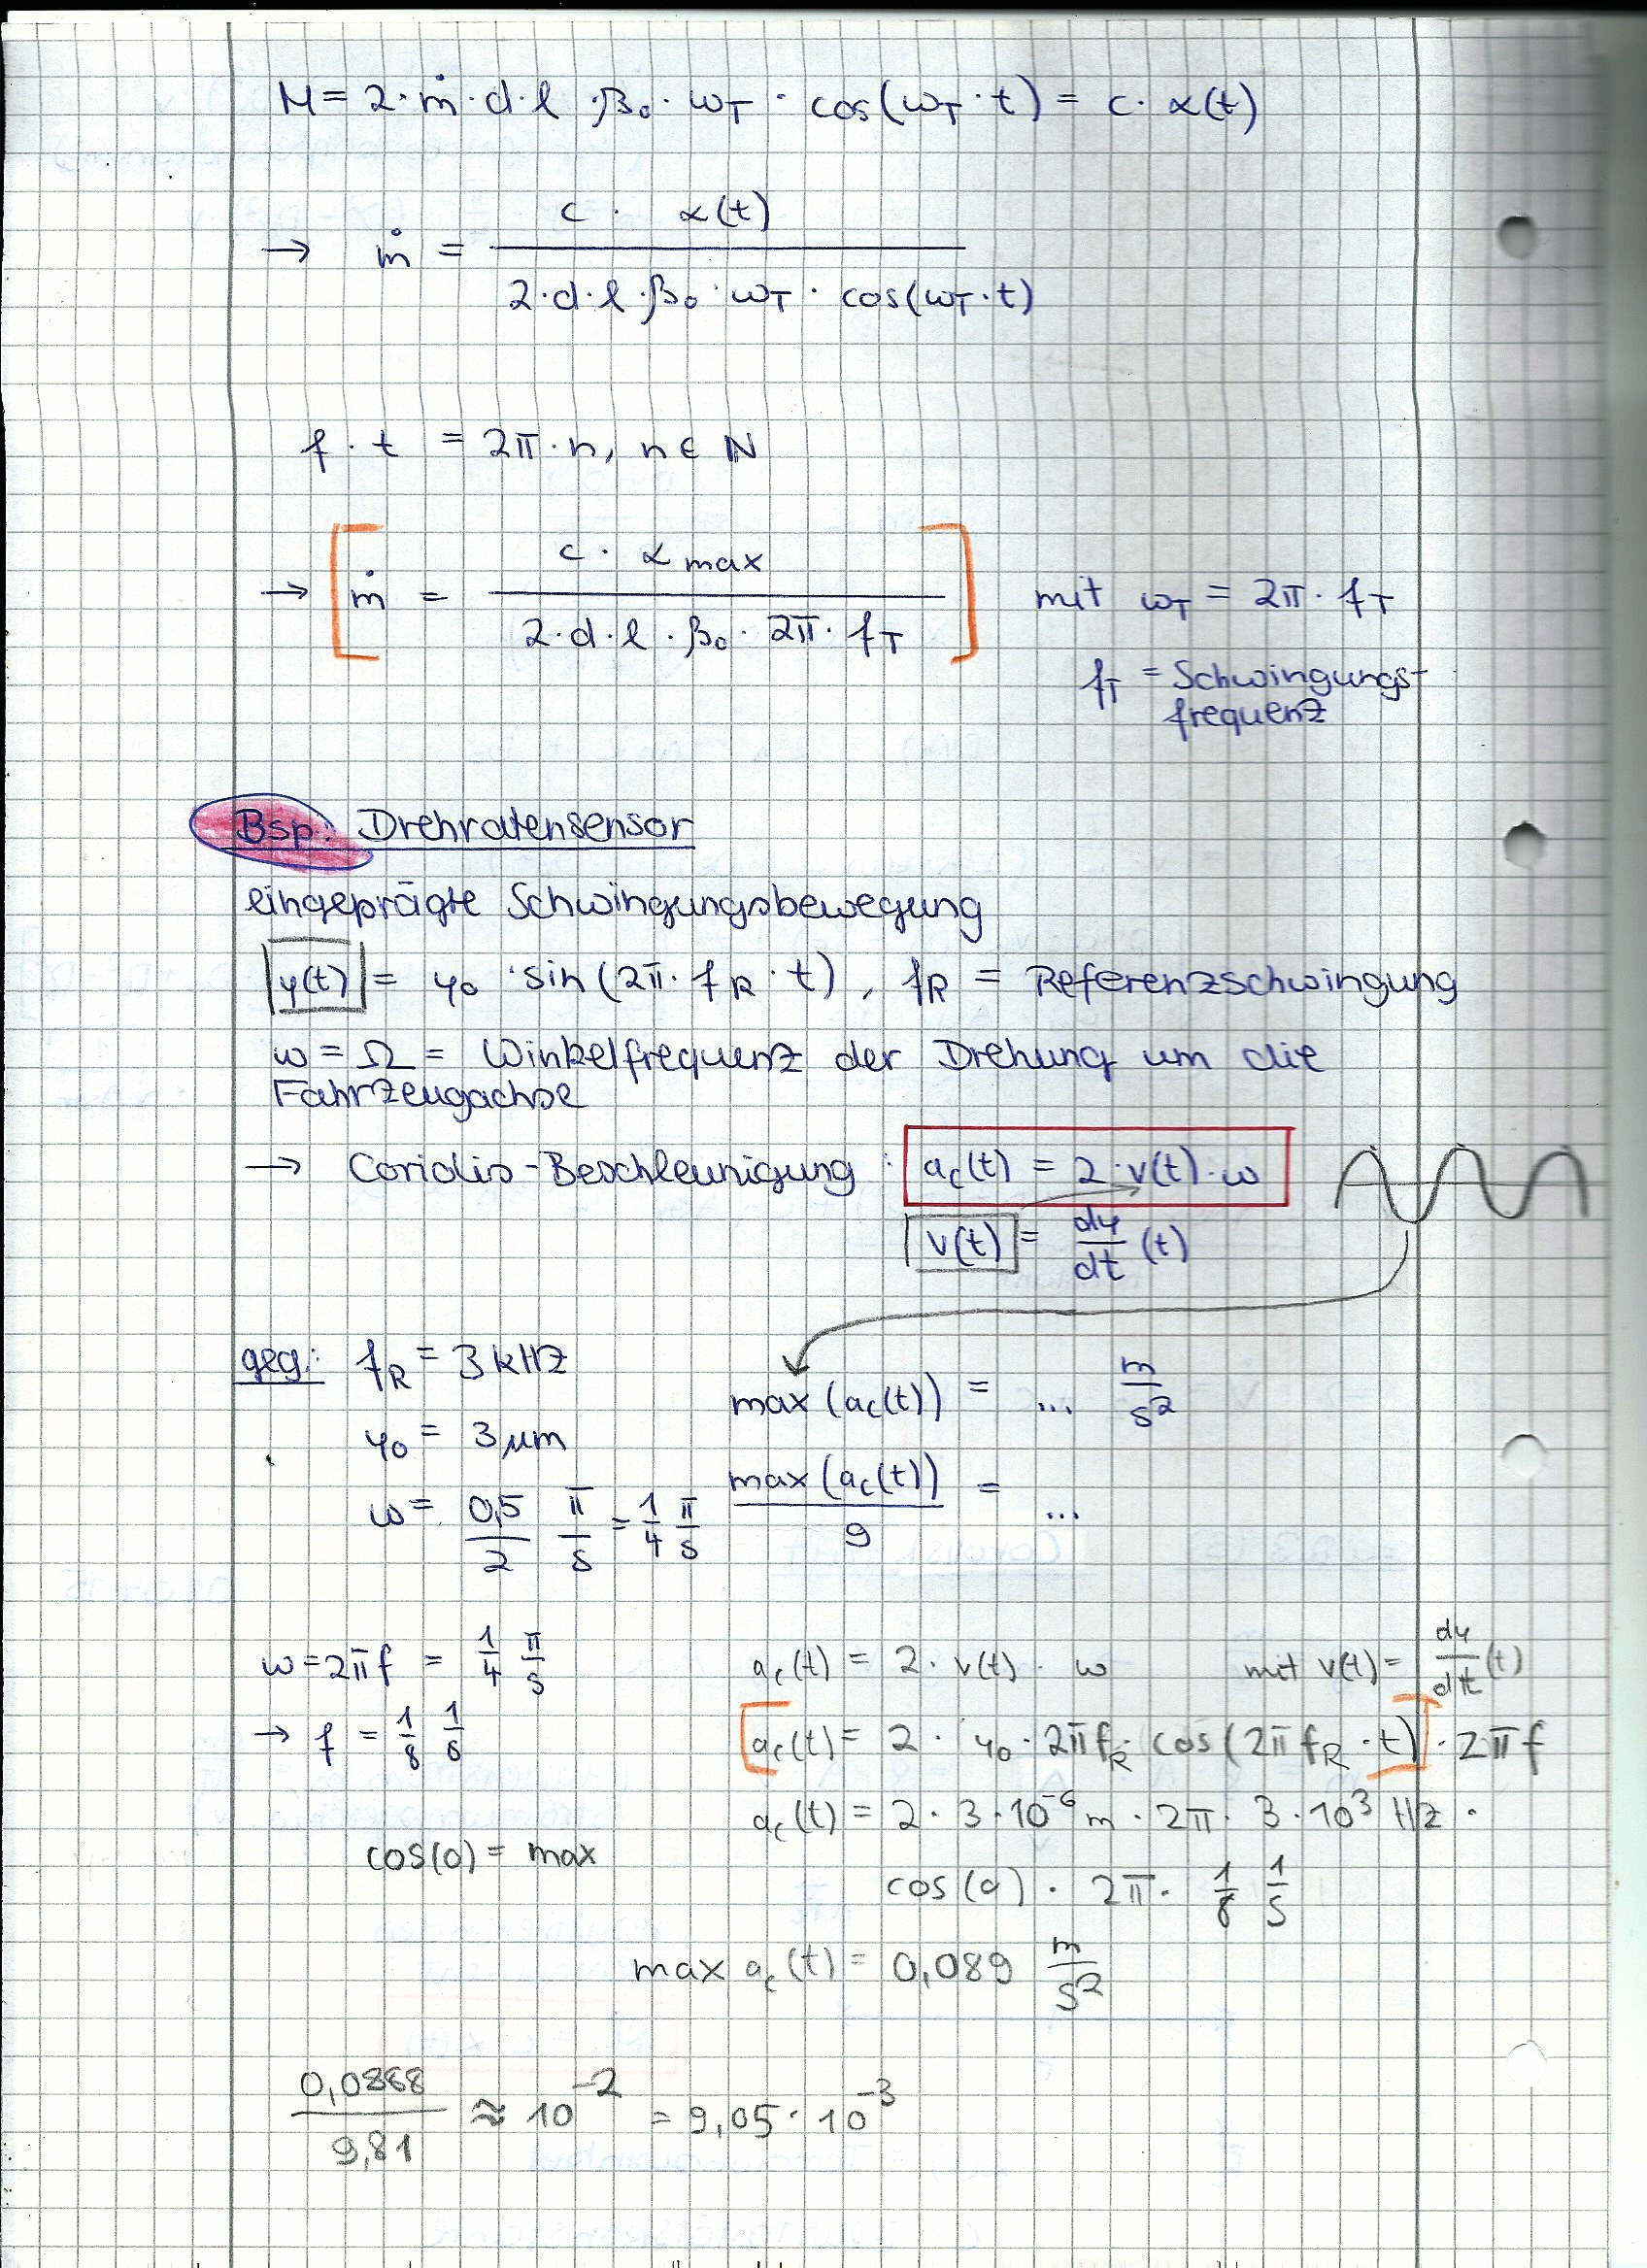 M = 2·ṁ·d·l·β₀·ω_T·cos(ω_T·t) = c·α(t)
→ ṁ = c·α(t) / 2·d·l·β₀·ω_T·cos(ω_T·t)
f·t = 2π·n, n ∈ ℕ
→ [ṁ = c·α_max / 2·d·l·β₀·2π·f_T] mit ω_T = 2π·f_T
f_T = Schwingungs-
frequenz
Bsp.: Drehratensensor
eingeprägte Schwingungsbewegung
y(t) = y₀·sin(2π·f_R·t), f_R = Referenzschwingung
ω = Ω = Winkelfrequenz der Drehung um die
Fahrzeugachse
→ Coriolis-Beschleunigung: a_c(t) = 2·v(t)·ω
v(t) = dy/dt (t)
geg.: f_R = 3 kHz
max (a_c(t)) = ... m/s²
y₀ = 3 μm
max (a_c(t)) / 9 = ...
ω = 0,5/2 π/s = 1/4 π/s
ω = 2πf = 1/4 π/s
a_c(t) = 2·v(t)·ω mit v(t) = dy/dt (t)
→ f = 1/8 1/s
[a_c(t) = 2·y₀·2πf_R·cos(2πf_R·t)]·2πf
a_c(t) = 2·3·10⁻⁶ m·2π·3·10³ Hz·
cos(0) = max
cos(0)·2π·1/8 1/s
max a_c(t) = 0,089 m/s²
0,0888 / 9,81 ≈ 10⁻² = 9,05·10⁻³